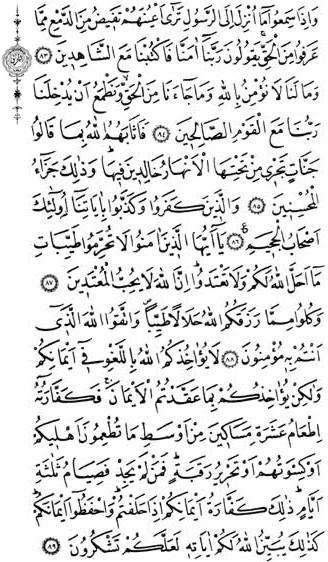 وَاِذَا سَمِعُوا مَٓا اُنْزِلَ اِلَى الرَّسُولِ تَرٰٓى اَعْيُنَهُمْ تَف۪يضُ مِنَ الدَّمْعِ مِمَّا
عَرَفُوا مِنَ الْحَقِّۚ يَقُولُونَ رَبَّنَٓا اٰمَنَّا فَاكْتُبْنَا مَعَ الشَّاهِد۪ينَ ﴿٨٣﴾
وَمَا لَنَا لَا نُؤْمِنُ بِاللّٰهِ وَمَا جَٓاءَنَا مِنَ الْحَقِّۙ وَنَطْمَعُ اَنْ يُدْخِلَنَا
رَبُّنَا مَعَ الْقَوْمِ الصَّالِح۪ينَ ﴿٨٤﴾ فَاَثَابَهُمُ اللّٰهُ بِمَا قَالُوا
جَنَّاتٍ تَجْر۪ي مِنْ تَحْتِهَا الْاَنْهَارُ خَالِد۪ينَ ف۪يهَاۜ وَذٰلِكَ جَزَٓاءُ
الْمُحْسِن۪ينَ ﴿٨٥﴾ وَالَّذ۪ينَ كَفَرُوا وَكَذَّبُوا بِاٰيَاتِنَٓا اُو۬لٰٓئِكَ
اَصْحَابُ الْجَح۪يمِ۟ ﴿٨٦﴾ يَٓا اَيُّهَا الَّذ۪ينَ اٰمَنُوا لَا تُحَرِّمُوا طَيِّبَاتِ
مَٓا اَحَلَّ اللّٰهُ لَكُمْ وَلَا تَعْتَدُواۜ اِنَّ اللّٰهَ لَا يُحِبُّ الْمُعْتَد۪ينَ ﴿٨٧﴾
وَكُلُوا مِمَّا رَزَقَكُمُ اللّٰهُ حَلَالًا طَيِّبًاۖ وَاتَّقُوا اللّٰهَ الَّذ۪ٓي
اَنْتُمْ بِه۪ مُؤْمِنُونَ ﴿٨٨﴾ لَا يُؤَاخِذُكُمُ اللّٰهُ بِاللَّغْوِ ف۪ٓي اَيْمَانِكُمْ
وَلٰكِنْ يُؤَاخِذُكُمْ بِمَا عَقَّدْتُمُ الْاَيْمَانَۚ فَكَفَّارَتُهُٓ
اِطْعَامُ عَشَرَةِ مَسَاك۪ينَ مِنْ اَوْسَطِ مَا تُطْعِمُونَ اَهْل۪يكُمْ
اَوْ كِسْوَتُهُمْ اَوْ تَحْر۪يرُ رَقَبَةٍۜ فَمَنْ لَمْ يَجِدْ فَصِيَامُ ثَلٰثَةِ
اَيَّامٍۜ ذٰلِكَ كَفَّارَةُ اَيْمَانِكُمْ اِذَا حَلَفْتُمْۜ وَاحْفَظُٓوا اَيْمَانَكُمْۜ
كَذٰلِكَ يُبَيِّنُ اللّٰهُ لَكُمْ اٰيَاتِه۪ لَعَلَّكُمْ تَشْكُرُونَ ﴿٨٩﴾